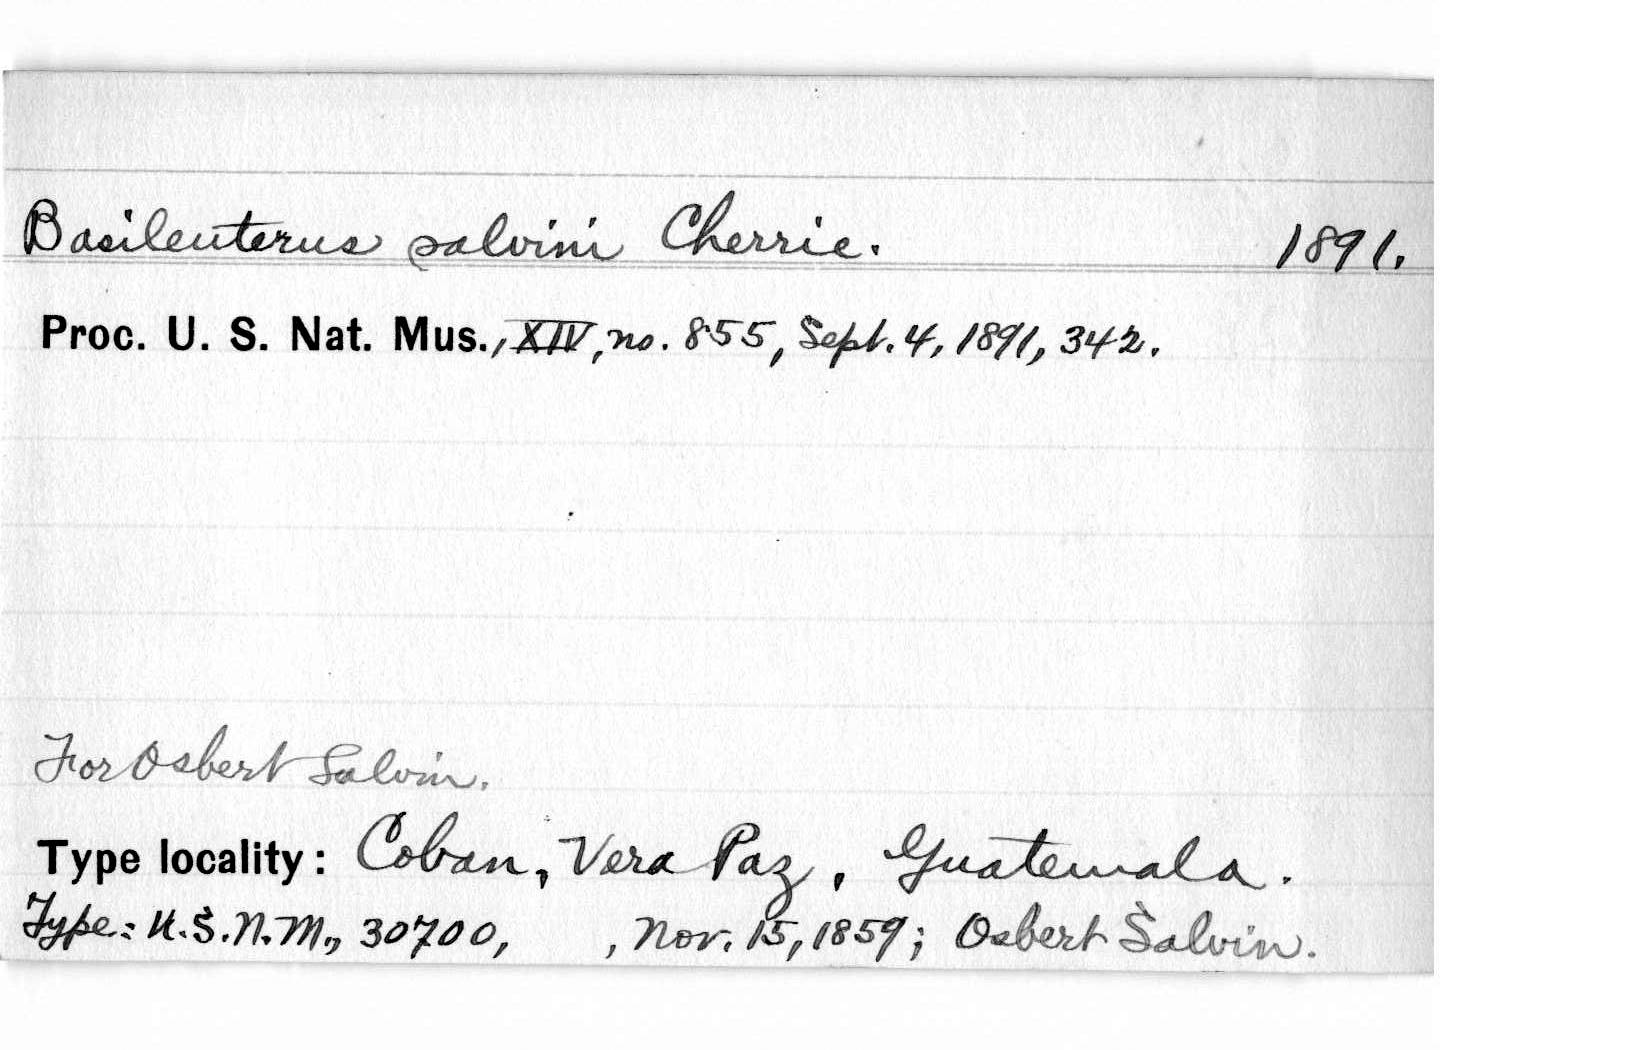 Basileuterus salvini Cherrie. 1891.
Proc. U. S. Nat. Mus., XIV, no. 855, Sept. 4, 1891, 342.
For Osbert Salvin.
Type locality: Coban, Vera Paz, Guatemala.
Type: U.S.N.M., 30700, , Nov. 15, 1859; Osbert Salvin.